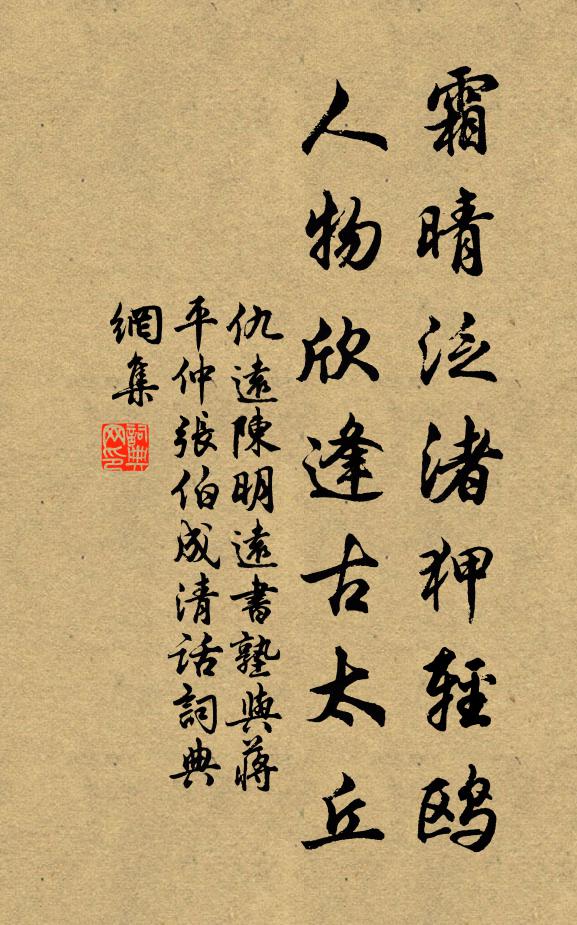 霜晴泛渚狎輕鸥
人物欣逢古太丘
仇遠陳明遠書塾與蔣
平仲張伯成清話詞典
網集
詞典
网印